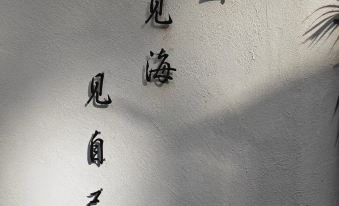 见海
见自